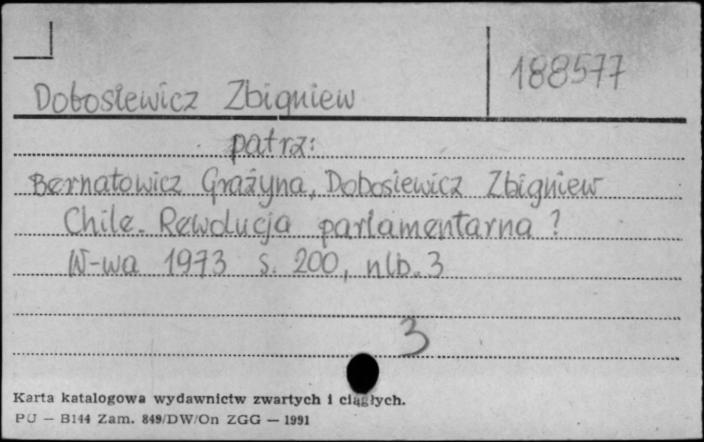 188577
Dobosiewicz Zbigniew
patrz:
Bernatowicz Grażyna, Dobosiewicz Zbigniew
Chile. Rewolucja parlamentarna?
W-wa 1973 s. 200, nlb. 3
3
Karta katalogowa wydawnictw zwartych i ciągłych.
PU — B144 Zam. 849/DW/On ZGG — 1991